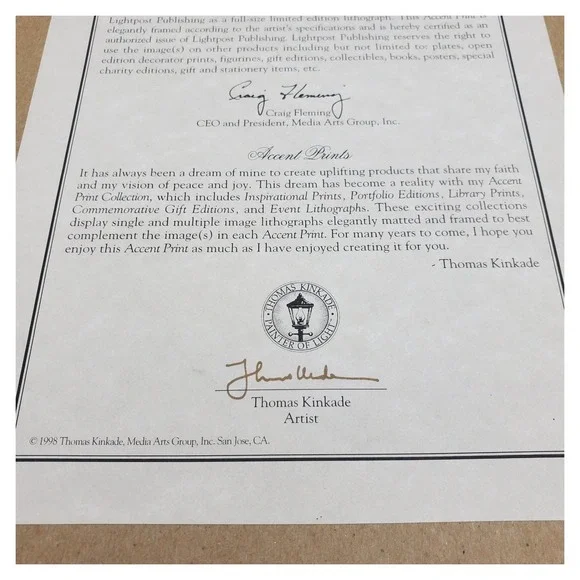 Lightpost Publishing as a full-size limited edition lithograph. This Accent Print is
elegantly framed according to the artist's specifications and is hereby certified as an
authorized issue of Lightpost Publishing. Lightpost Publishing reserves the right to
use the image(s) on other products including but not limited to: plates, open
edition decorator prints, figurines, gift editions, collectibles, books, posters, special
charity editions, gift and stationery items, etc.
Craig Fleming
Craig Fleming
CEO and President, Media Arts Group, Inc.
Accent Prints
It has always been a dream of mine to create uplifting products that share my faith
and my vision of peace and joy. This dream has become a reality with my Accent
Print Collection, which includes Inspirational Prints, Portfolio Editions, Library Prints,
Commemorative Gift Editions, and Event Lithographs. These exciting collections
display single and multiple image lithographs elegantly matted and framed to best
complement the image(s) in each Accent Print. For many years to come, I hope you
enjoy this Accent Print as much as I have enjoyed creating it for you.
- Thomas Kinkade
THOMAS KINKADE
PAINTER OF LIGHT
Thomas Kinkade
Artist
© 1998 Thomas Kinkade, Media Arts Group, Inc. San Jose, CA.